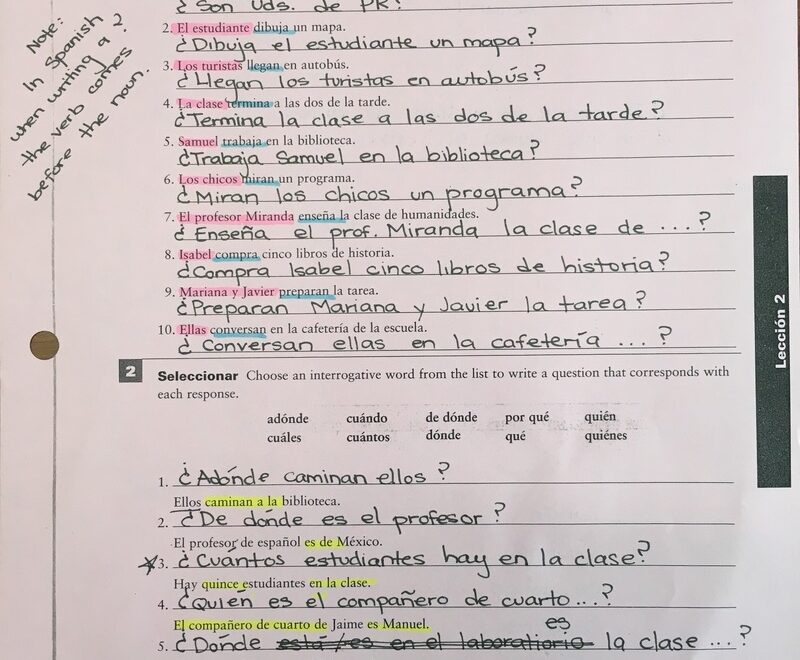 ¿Son Uds. de PR?
Note:
In Spanish
when writing a ?
the verb comes
before the noun.
2. El estudiante dibuja un mapa.
¿Dibuja el estudiante un mapa?
3. Los turistas llegan en autobús.
¿Llegan los turistas en autobús?
4. La clase termina a las dos de la tarde.
¿Termina la clase a las dos de la tarde?
5. Samuel trabaja en la biblioteca.
¿Trabaja Samuel en la biblioteca?
6. Los chicos miran un programa.
¿Miran los chicos un programa?
7. El profesor Miranda enseña la clase de humanidades.
¿Enseña el prof. Miranda la clase de ...?
8. Isabel compra cinco libros de historia.
¿Compra Isabel cinco libros de historia?
9. Mariana y Javier preparan la tarea.
¿Preparan Mariana y Javier la tarea?
10. Ellas conversan en la cafetería de la escuela.
¿Conversan ellas en la cafetería ...?
Lección 2
2 Seleccionar Choose an interrogative word from the list to write a question that corresponds with
each response.
adónde cuándo de dónde por qué quién
cuáles cuántos dónde qué quiénes
1. ¿Adónde caminan ellos?
Ellos caminan a la biblioteca.
2. ¿De dónde es el profesor?
El profesor de español es de México.
3. ¿Cuántos estudiantes hay en la clase?
Hay quince estudiantes en la clase.
4. ¿Quién es el compañero de cuarto...?
El compañero de cuarto de Jaime es Manuel.
es
5. ¿Dónde está/es en el laboratiorio la clase ...?